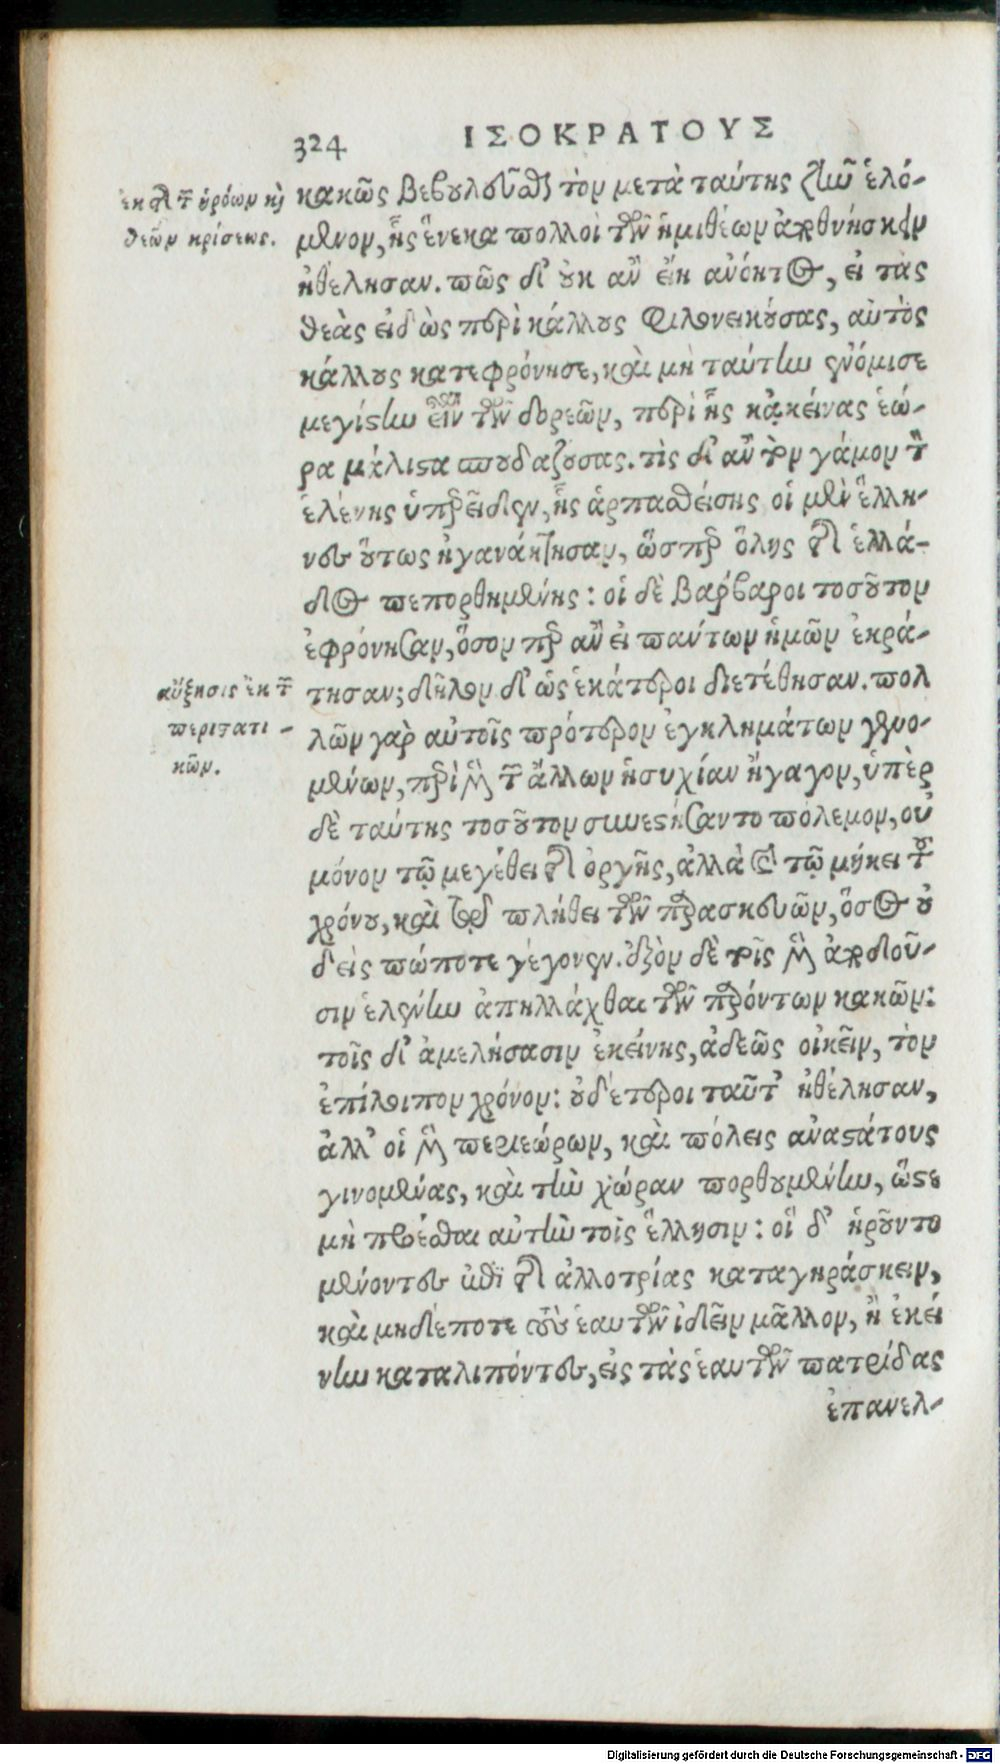 324 ΙΣΟΚΡΑΤΟΥΣ
ἐκ τῆς τῶν ἡρώων καὶ
θεῶν κρίσεως.
κακῶς βεβουλεῦσθαι τὸν μετὰ ταύτης ζῆν ἑλό-
μενον, ἧς ἕνεκα πολλοὶ τῶν ἡμιθέων ἀποθνήσκειν
ἠθέλησαν. πῶς δ' οὐκ ἂν εἴη ἀνόητος, εἰ τὰς
θεὰς εἰδὼς περὶ κάλλους φιλονεικούσας, αὐτὸς
κάλλους κατεφρόνησε, καὶ μὴ ταύτην ἐνόμισε
μεγίστην εἶναι τῶν δορεῶν, περὶ ἧς κἀκείνας ἑώ-
ρα μάλιστα σπουδαζούσας. τὶς δ' ἂν τὸν γάμον τὸν
ἑλένης ὑπερεῖδεν, ἧς ἁρπασθείσης οἱ μὲν ἕλλη-
νες οὕτως ἠγανάκτησαν, ὥσπερ ὅλης τῆς ἑλλά-
δος πεπορθημένης: οἱ δὲ βάρβαροι τοσοῦτον
ἐφρόνησαν, ὅσον περ ἂν εἰ πάντων ἡμῶν ἐκρά-
αὔξησις ἐκ τῶν
περιστατι-
κῶν.
τησαν; δῆλον δ' ὡς ἑκάτεροι διετέθησαν. πολ
λῶν γὰρ αὐτοῖς πρότερον ἐγκλημάτων γενο-
μένων, περὶ μὲν τῶν ἄλλων ἡσυχίαν ἤγαγον, ὑπὲρ
δὲ ταύτης τοσοῦτον συνεστήσαντο πόλεμον, οὐ
μόνον τῷ μεγέθει τῆς ὀργῆς, ἀλλὰ καὶ τῷ μήκει τοῦ
χρόνου, καὶ τῷ πλήθει τῶν παρασκευῶν, ὅσος οὐ
δεὶς πώποτε γέγονεν. ἐξὸν δὲ τοῖς μὲν ἀποδοῦ-
σιν ἑλένην ἀπηλλάχθαι τῶν παρόντων κακῶν:
τοῖς δ' ἀμελήσασιν ἐκείνης, ἀδεῶς οἰκεῖν, τὸν
ἐπίλοιπον χρόνον: οὐδέτεροι ταῦτ' ἠθέλησαν,
ἀλλ' οἱ μὲν περιεώρων, καὶ πόλεις ἀναστάτους
γινομένας, καὶ τὴν χώραν πορθουμένην, ὥστε
μὴ προέσθαι αὐτὴν τοῖς ἕλλησιν: οἱ δ' ᾑροῦντο
μένοντες ἐπὶ τῆς ἀλλοτρίας καταγηράσκειν,
καὶ μηδέποτε τοὺς ἑαυτῶν ἰδεῖν μᾶλλον, ἢ ἐκεί
νην καταλιπόντες, εἰς τὰς ἑαυτῶν πατρίδας
ἐπανελ-
Digitalisierung gefördert durch die Deutsche Forschungsgemeinschaft - DFG